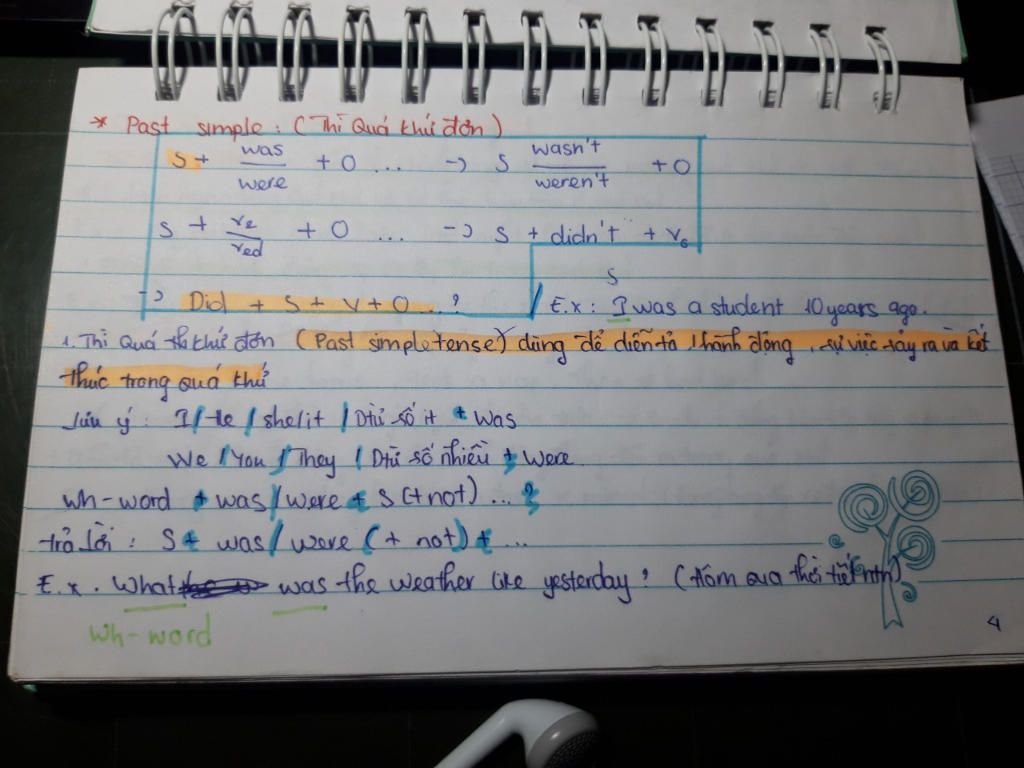 * Past simple: (Thì Quá khứ đơn)
S + was/were + O ... -> S wasn't/weren't + O
S + v2/ved + O ... -> S + didn't + v6
S
-> Did + S + V + O ...? / E.x: I was a student 10 years ago.
1. Thì Quá khứ đơn (Past simple tense) dùng để diễn tả hành động, sự việc xảy ra và kết
thúc trong quá khứ
Lưu ý: I/He/she/it/Dtừ số ít + was
We/You/They/Dtừ số nhiều + were
wh-word + was/were + S (+ not) ... ?
trả lời: S + was/were (+ not) + ...
E.x. What was the weather like yesterday? (Hôm qua thời tiết ntn)
wh-word
4